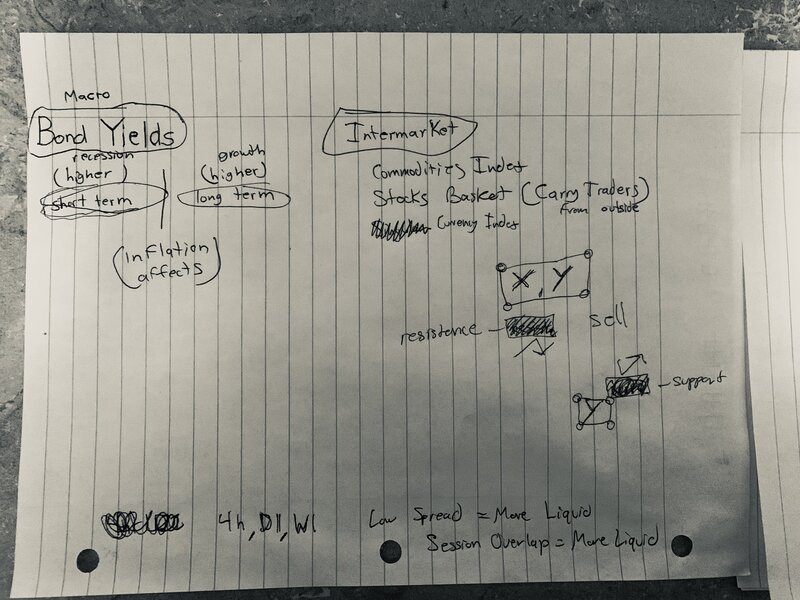 Macro
Bond Yields
recession
(higher)
short term
growth
(higher)
long term
(inflation
affects)
Intermarket
Commodities Index
Stocks Basket (Carry Traders)
from outside
Currency Index
X, Y
resistence
sell
support
Y
4h, D1, W1
Low Spread = More Liquid
Session Overlap = More Liquid